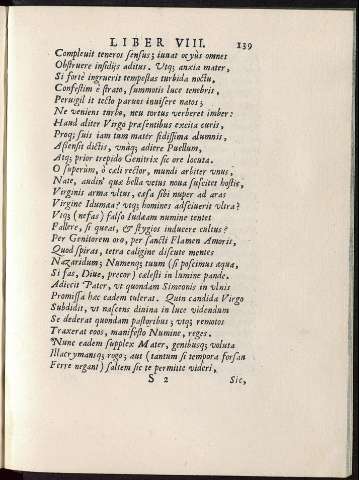 LIBER VIII. 139
Compleuit teneros sensus; iuuat ocyùs omnes
Obstruere insidijs aditus. Vtq; anxia mater,
Si fortè ingruerit tempestas turbida noctu,
Confestim è strato, summotis luce tenebris,
Peruigil it tecto paruos inuisere natos;
Ne veniens turbo, neu tortus verberet imber:
Haud aliter Virgo præsentibus excita curis,
Proq; suis iam tum mater fidissima alumnis,
Assensit dictis, vnàq; adiere Puellum,
Atq; prior trepido Genitrix sic ore locuta.
O superûm, ô cæli rector, mundi arbiter vnus,
Nate, audin' quæ bella vetus noua suscitet hostis,
Virginis arma vltus, cæsa sibi nuper ad aras
Virgine Idumæa? vtq; homines adsciuerit vltra?
Vtq; (nefas) falso Iudæam numine tentet
Fallere, si queat, & stygios inducere cultus?
Per Genitorem oro, per sancti Flamen Amoris,
Quod spiras, tetra caligine discute mentes
Nazaridum; Numenq; tuum (si poscimus æqua,
Si fas, Diue, precor) cælesti in lumine pande.
Adiecit Pater, vt quondam Simeonis in vlnis
Promissa hæc eadem tulerat. Quin candida Virgo
Subdidit, vt nascens diuina in luce videndum
Se dederat quondam pastoribus; vtq; remotos
Traxerat eoos, manifesto Numine, reges.
Nunc eadem supplex Mater, genibusq; voluta
Illacrymansq; rogo; aut (tantum si tempora forsan
Ferre negant) saltem sic te permitte videri,
S 2 Sic,